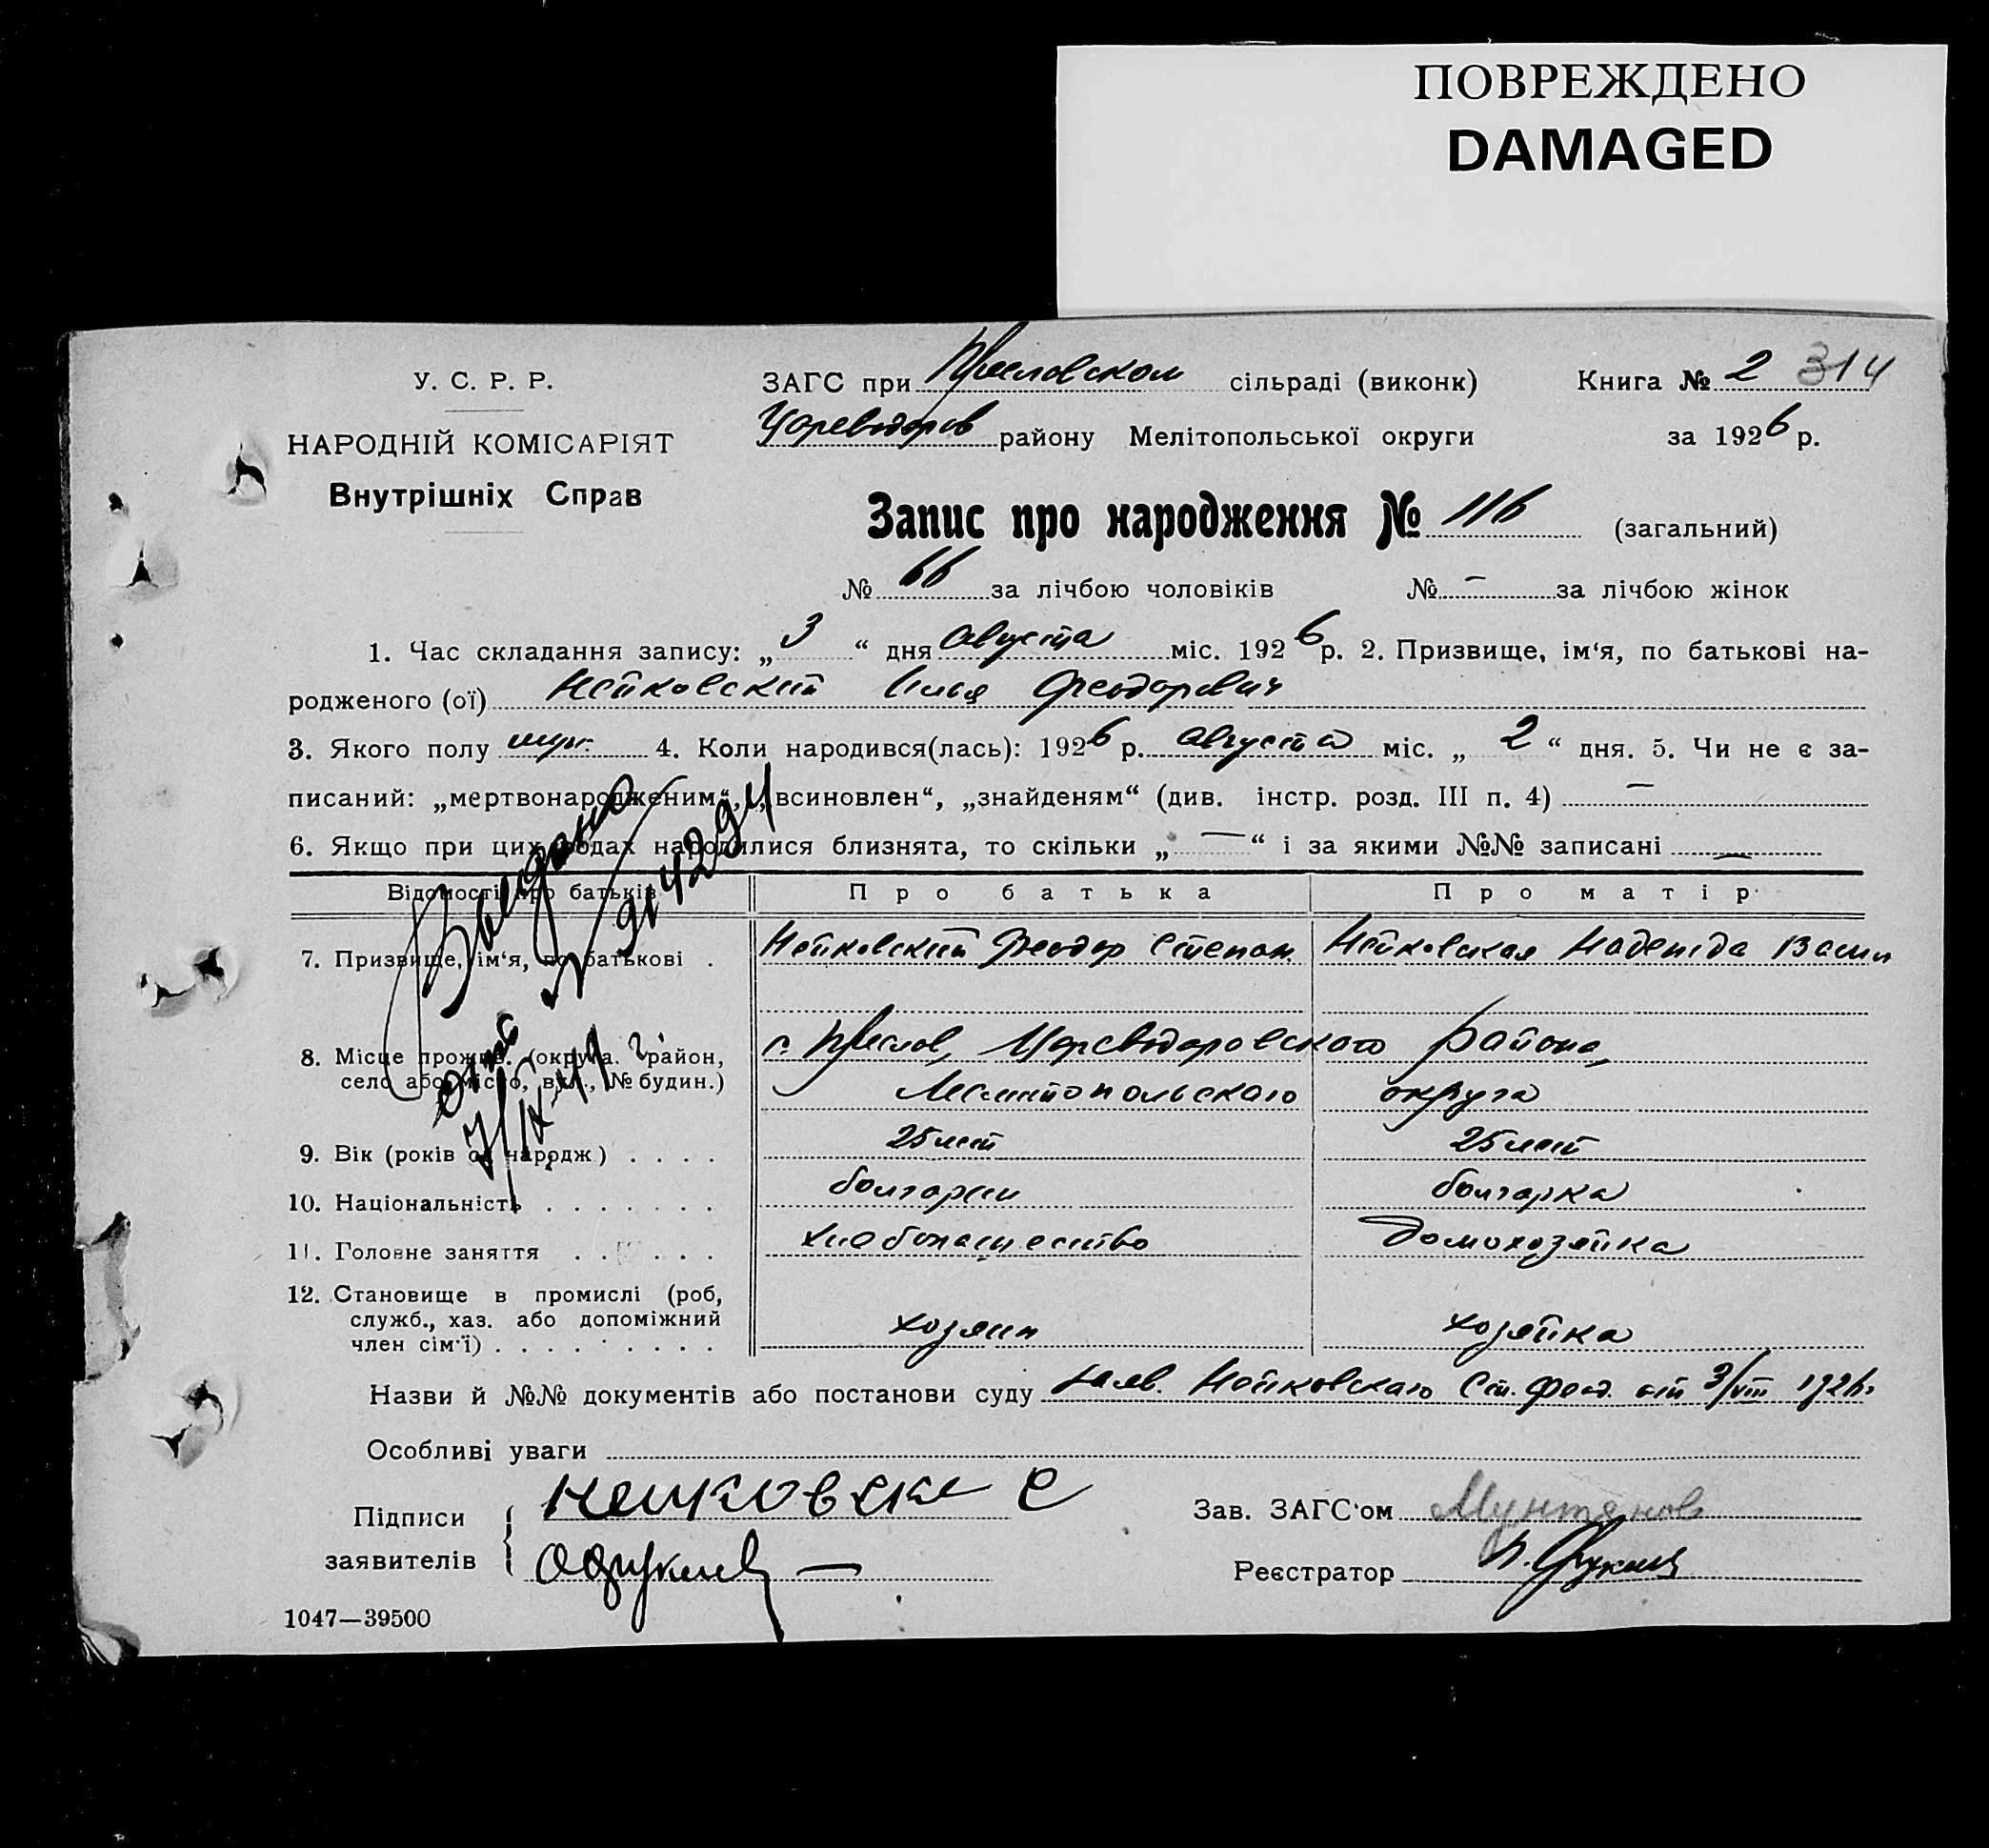 ПОВРЕЖДЕНО
DAMAGED
У. С. Р. Р.
НАРОДНІЙ КОМІСАРІЯТ
Внутрішніх Справ
ЗАГС при Преславском сільраді (виконк) Книга № 2 314
Цареводаров району Мелітопольської округи за 1926 р.
Запис про народження № 116 (загальний)
№ 66 за лічбою чоловіків № — за лічбою жінок
1. Час складання запису: „ 3 “ дня августа міс. 1926 р. 2. Призвище, ім‘я, по батькові на-
родженого (ої) Нейковский Илья Феодорович
3. Якого полу муж. 4. Коли народився(лась): 1926 р. августа міс. „ 2 “ дня. 5. Чи не є за-
писаний: „мертвонародженим“, „всиновлен“, „знайденям“ (див. інстр. розд. III п. 4) —
6. Якщо при цих родах народилися близнята, то скільки „ — “ і за якими №№ записані —
Відомості про батьків Про батька Про матір
7. Призвище, ім‘я, по батькові . Нейковский Феодор Степан. Нейковская Надежда Васил
8. Місце прожив. (округа, район, с. Преслав, Цареводаровского района,
село або місто, вул., № будин.) Мелитопольскаго округа
9. Вік (років од народж) . . . . 25 лет 25 лет
10. Національність . . . . . . . болгарин болгарка
11. Головне заняття . . . . . хлебопашество домохозяйка
12. Становище в промислі (роб,
служб., хаз. або допоміжний
член сім‘ї) . . . . . . . . . хозяин хозяйка
Выдано
Назви й №№ документів або постанови суду заяв. Нейковскаго Ст. Феод. от 3/VIII 1926г.
Особливі уваги
Підписи
заявителів
Зав. ЗАГС‘ом Мунтянов
Реєстратор
1047—39500